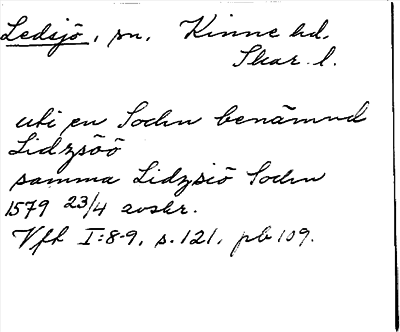 Ledsjö, sn. Kinne hd.
Skar. l.
uti en Sochn benämnd
Lidzsöö
samma Lidzsiö Sochn
1579 23/4 avskr.
Vfk I:8-9, s. 121, pb 109.